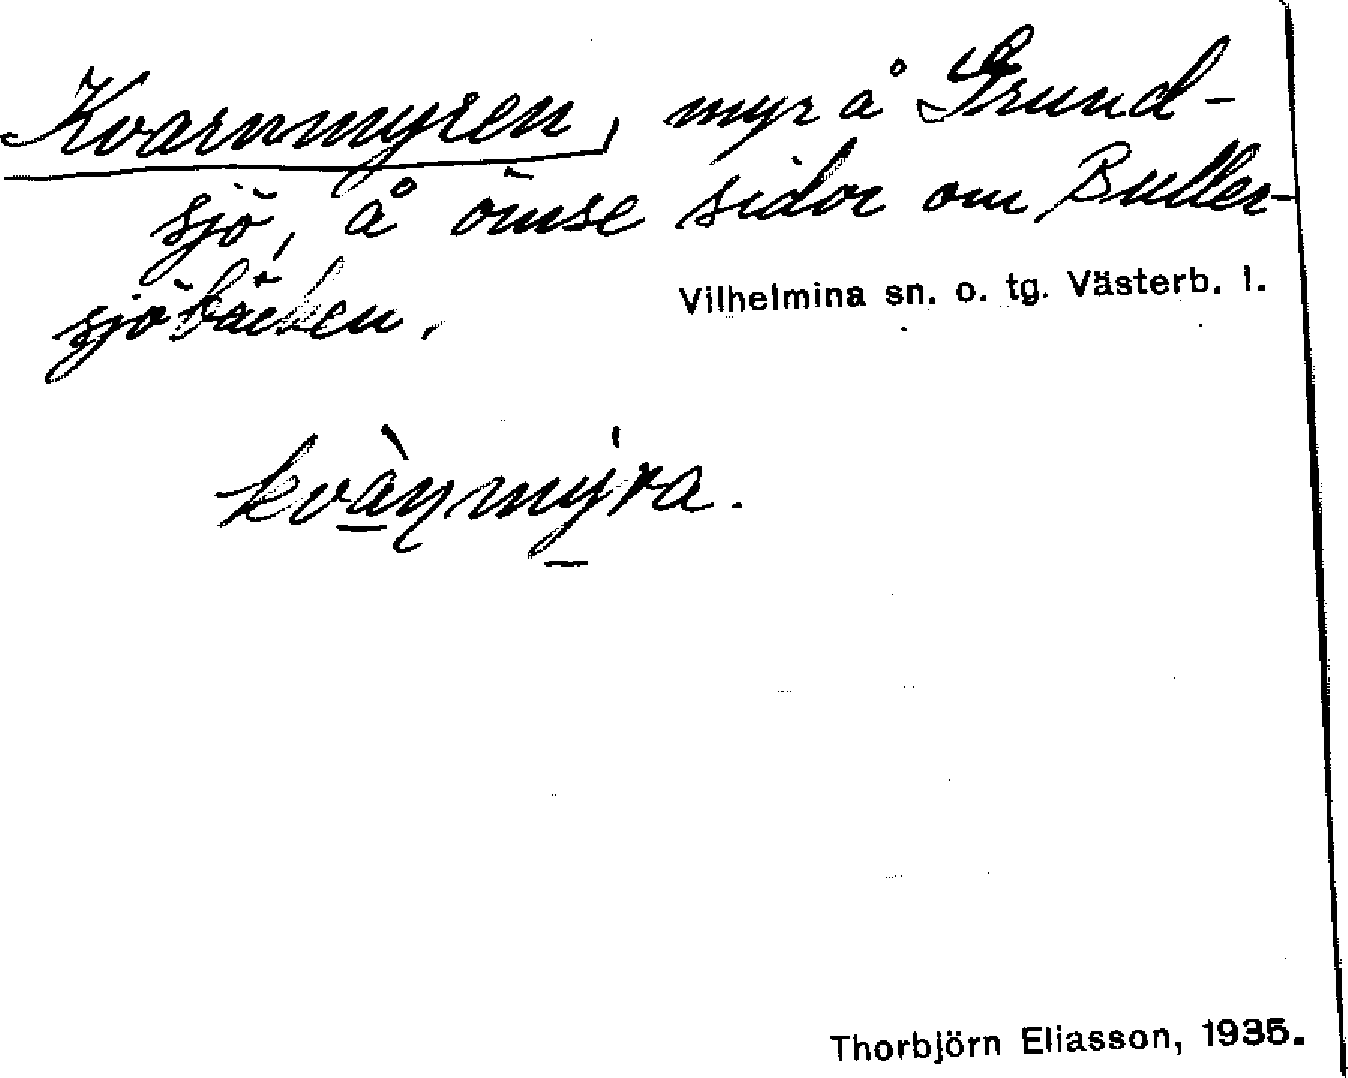 Kvarnmyren, myr å Grund-
sjö, å ömse sidor om Buller-
sjöbäcken.
Vilhelmina sn. o. tg. Västerb. l.
kvàɳmy̍ra.
Thorbjörn Eliasson, 1935.